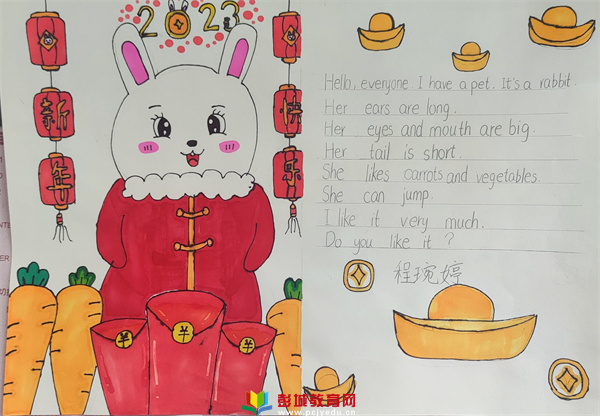 2023
新
年
快
乐
羊
羊
羊
Hello, everyone. I have a pet. It's a rabbit.
Her ears are long.
Her eyes and mouth are big.
Her tail is short.
She likes carrots and vegetables.
She can jump.
I like it very much.
Do you like it ?
程琬婷
彭城教育网
www.pcjyedu.cn